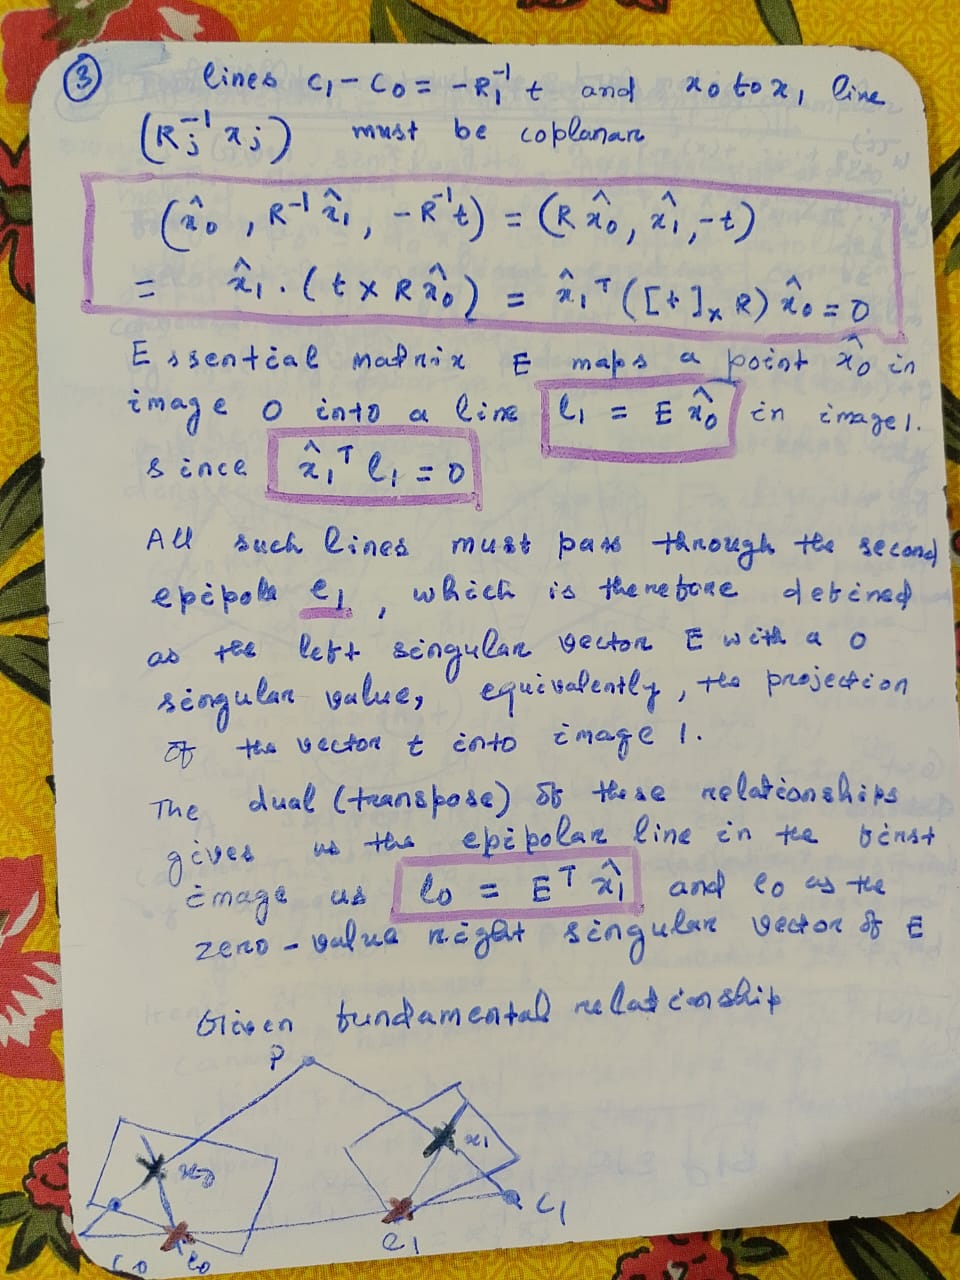 ③ lines c₁ - c₀ = -R₁⁻¹ t and x₀ to x₁ line
(Rⱼ⁻¹ xⱼ) must be coplanar
(x̂₀ , R⁻¹ x̂₁ , -R⁻¹t) = (R x̂₀, x̂₁, -t)
= x̂₁ · (t × R x̂₀) = x̂₁ᵀ ([t]ₓ R) x̂₀ = 0
Essential matrix E maps a point x̂₀ in
image 0 into a line l₁ = E x̂₀ in image 1.
since x̂₁ᵀ l₁ = 0
All such lines must pass through the second
epipole e₁, which is therefore defined
as the left singular vector E with a 0
singular value, equivalently, the projection
of the vector t into image 1.
The dual (transpose) of these relationships
gives us the epipolar line in the first
image as l₀ = Eᵀ x̂₁ and e₀ as the
zero-value right singular vector of E
Given fundamental relationship
P
x₀ x₁
c₀ e₀ e₁ c₁